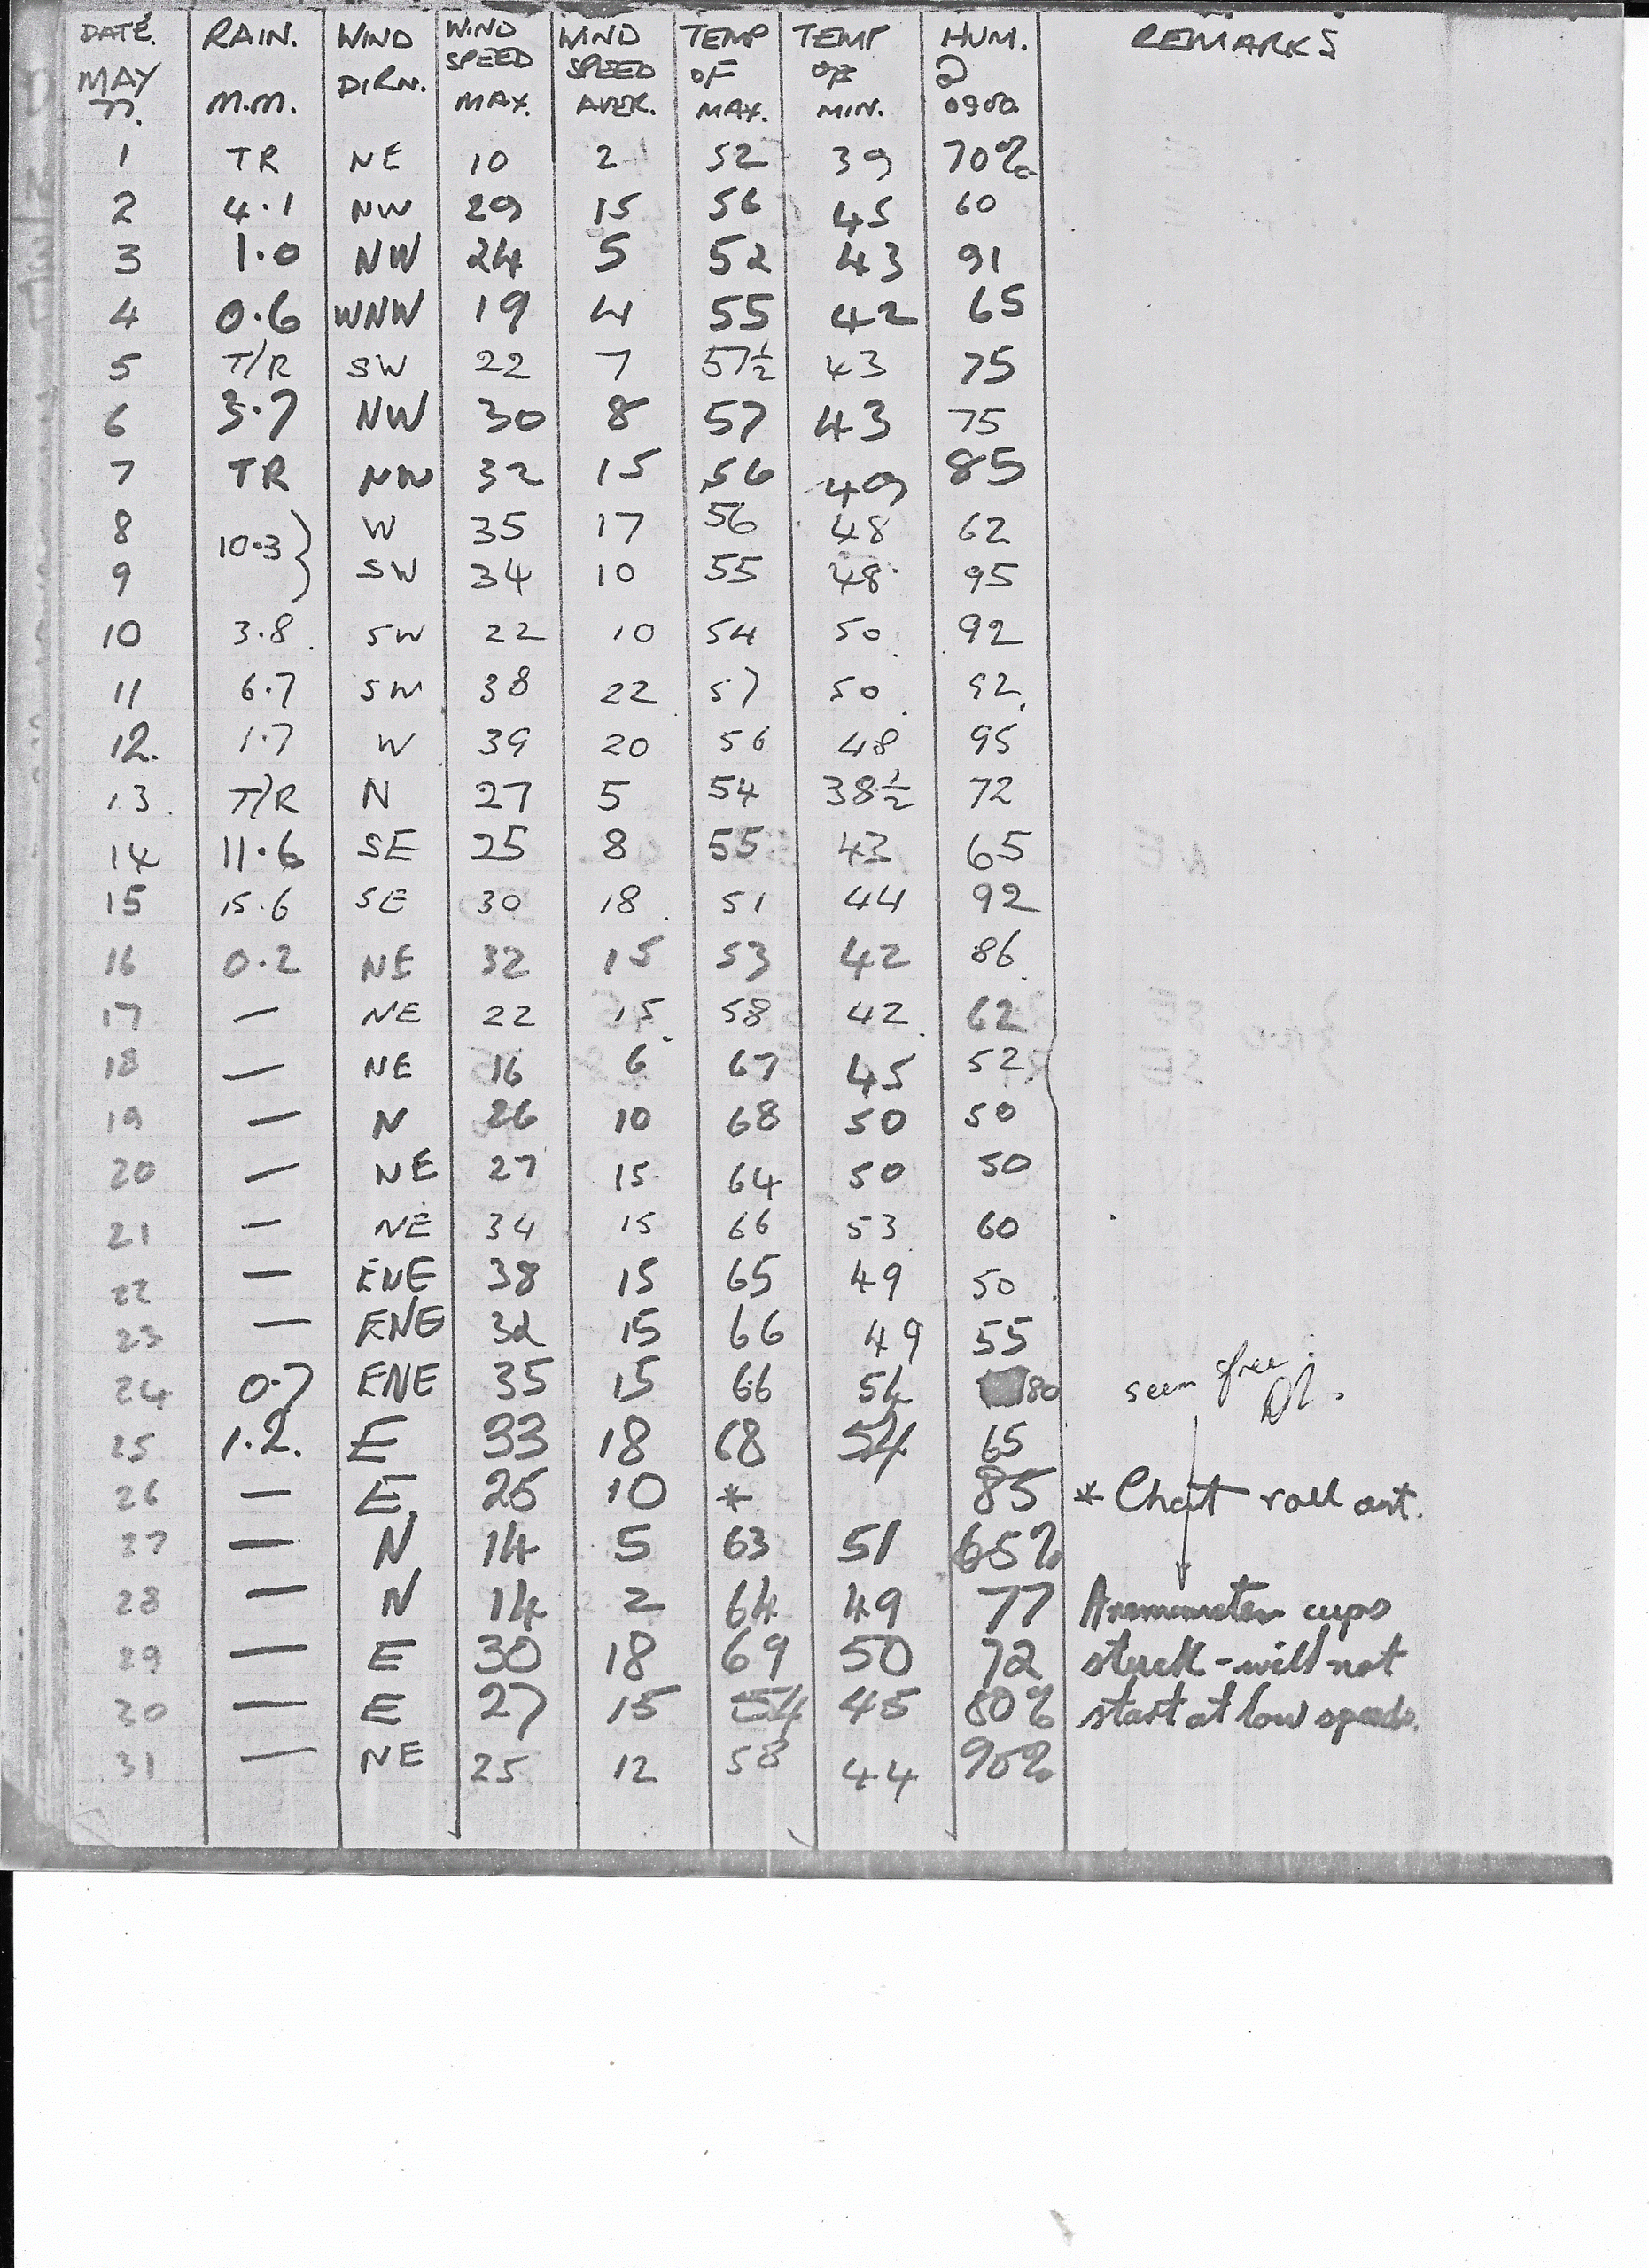 DATE. RAIN. WIND WIND WIND TEMP TEMP HUM. REMARKS
MAY DIRN. SPEED SPEED OF OF @
77. M.M. MAX. AVER. MAX. MIN. 0900
1 TR NE 10 2 52 39 70%
2 4.1 NW 29 15 56 45 60
3 1.0 NW 24 5 52 43 91
4 0.6 WNW 19 4 55 42 65
5 T/R SW 22 7 57½ 43 75
6 3.7 NW 30 8 57 43 75
7 TR NW 32 15 56 49 85
8 10.3 } W 35 17 56 48 62
9 SW 34 10 55 48 95
10 3.8 SW 22 10 54 50 92
11 6.7 SW 38 22 57 50 92
12. 1.7 W 39 20 56 48 95
13 T/R N 27 5 54 38½ 72
14 11.6 SE 25 8 55 43 65
15 15.6 SE 30 18 51 44 92
16 0.2 NE 32 15 53 42 86
17 — NE 22 15 58 42 62
18 — NE 16 6 67 45 52
19 — N 26 10 68 50 50
20 — NE 27 15 64 50 50
21 — NE 34 15 66 53 60
22 — ENE 38 15 65 49 50
23 — ENE 32 15 66 49 55
24 0.7 ENE 35 15 66 54 80 seem free.
25 1.2. E 33 18 68 54 65
26 — E. 25 10 * 85 * Chart roll out.
27 — N 14 5 63 51 65%
28 — N 14 2 64 49 77 Anemometer cups
29 — E 30 18 69 50 72 stuck - will not
30 — E 27 15 54 45 80% start at low speeds.
31 — NE 25 12 58 44 90%